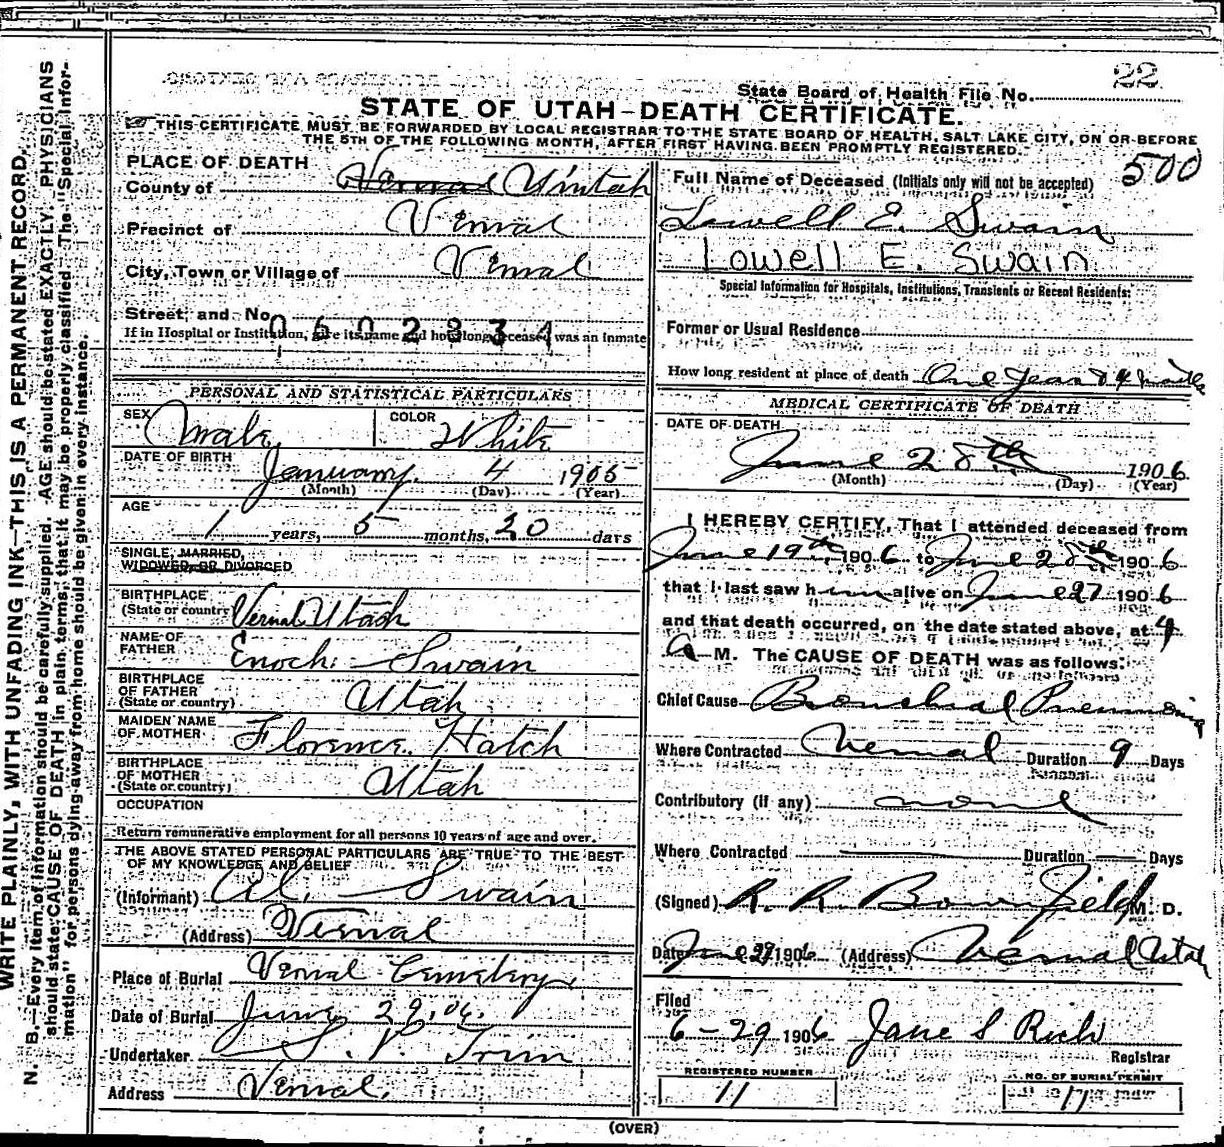 22
State Board of Health File No.
STATE OF UTAH—DEATH CERTIFICATE.
THIS CERTIFICATE MUST BE FORWARDED BY LOCAL REGISTRAR TO THE STATE BOARD OF HEALTH, SALT LAKE CITY, ON OR BEFORE
THE 5TH OF THE FOLLOWING MONTH, AFTER FIRST HAVING BEEN PROMPTLY REGISTERED.
500
WRITE PLAINLY, WITH UNFADING INK—THIS IS A PERMANENT RECORD.
N. B.—Every item of information should be carefully supplied. AGE should be stated EXACTLY. PHYSICIANS
should state CAUSE OF DEATH in plain terms, that it may be properly classified. The "Special Infor-
mation" for persons dying away from home should be given in every instance.
PLACE OF DEATH
County of Vernal Uintah
Precinct of Vernal
City, Town or Village of Vernal
Street and No.
0602834
If in Hospital or Institution, give its name and how long deceased was an inmate
PERSONAL AND STATISTICAL PARTICULARS
SEX Male COLOR White
DATE OF BIRTH January 4 1905
(Month) (Day) (Year)
AGE
1 years, 5 months, 20 days
SINGLE, MARRIED,
WIDOWED, OR DIVORCED
BIRTHPLACE
(State or country) Vernal Utah
NAME OF
FATHER Enoch Swain
BIRTHPLACE
OF FATHER
(State or country) Utah
MAIDEN NAME
OF MOTHER Florence Hatch
BIRTHPLACE
OF MOTHER
(State or country) Utah
OCCUPATION
Return remunerative employment for all persons 10 years of age and over.
THE ABOVE STATED PERSONAL PARTICULARS ARE TRUE TO THE BEST
OF MY KNOWLEDGE AND BELIEF
(Informant) Al. Swain
(Address) Vernal
Place of Burial Vernal Cemetery
Date of Burial June 29, 06.
Undertaker S. P. Trim
Address Vernal.
Full Name of Deceased (Initials only will not be accepted)
Lowell E. Swain
Lowell E. Swain
Special Information for Hospitals, Institutions, Transients or Recent Residents:
Former or Usual Residence
How long resident at place of death One Year & 4 months
MEDICAL CERTIFICATE OF DEATH
DATE OF DEATH
June 28th 1906
(Month) (Day) (Year)
I HEREBY CERTIFY, That I attended deceased from
June 19th 1906 to June 28th 1906
that I last saw him alive on June 27 1906
and that death occurred, on the date stated above, at 4
A M. The CAUSE OF DEATH was as follows:
Chief Cause Bronchial Pneumonia
Where Contracted Vernal Duration 9 Days
Contributory (if any) none
Where Contracted Duration Days
(Signed) R. R. Bownfield M. D.
Date June 29 1906 (Address) Vernal Utah
Filed
6-29 1906 Jane S Rich
Registrar
REGISTERED NUMBER
11
NO. OF BURIAL PERMIT
17
(OVER)